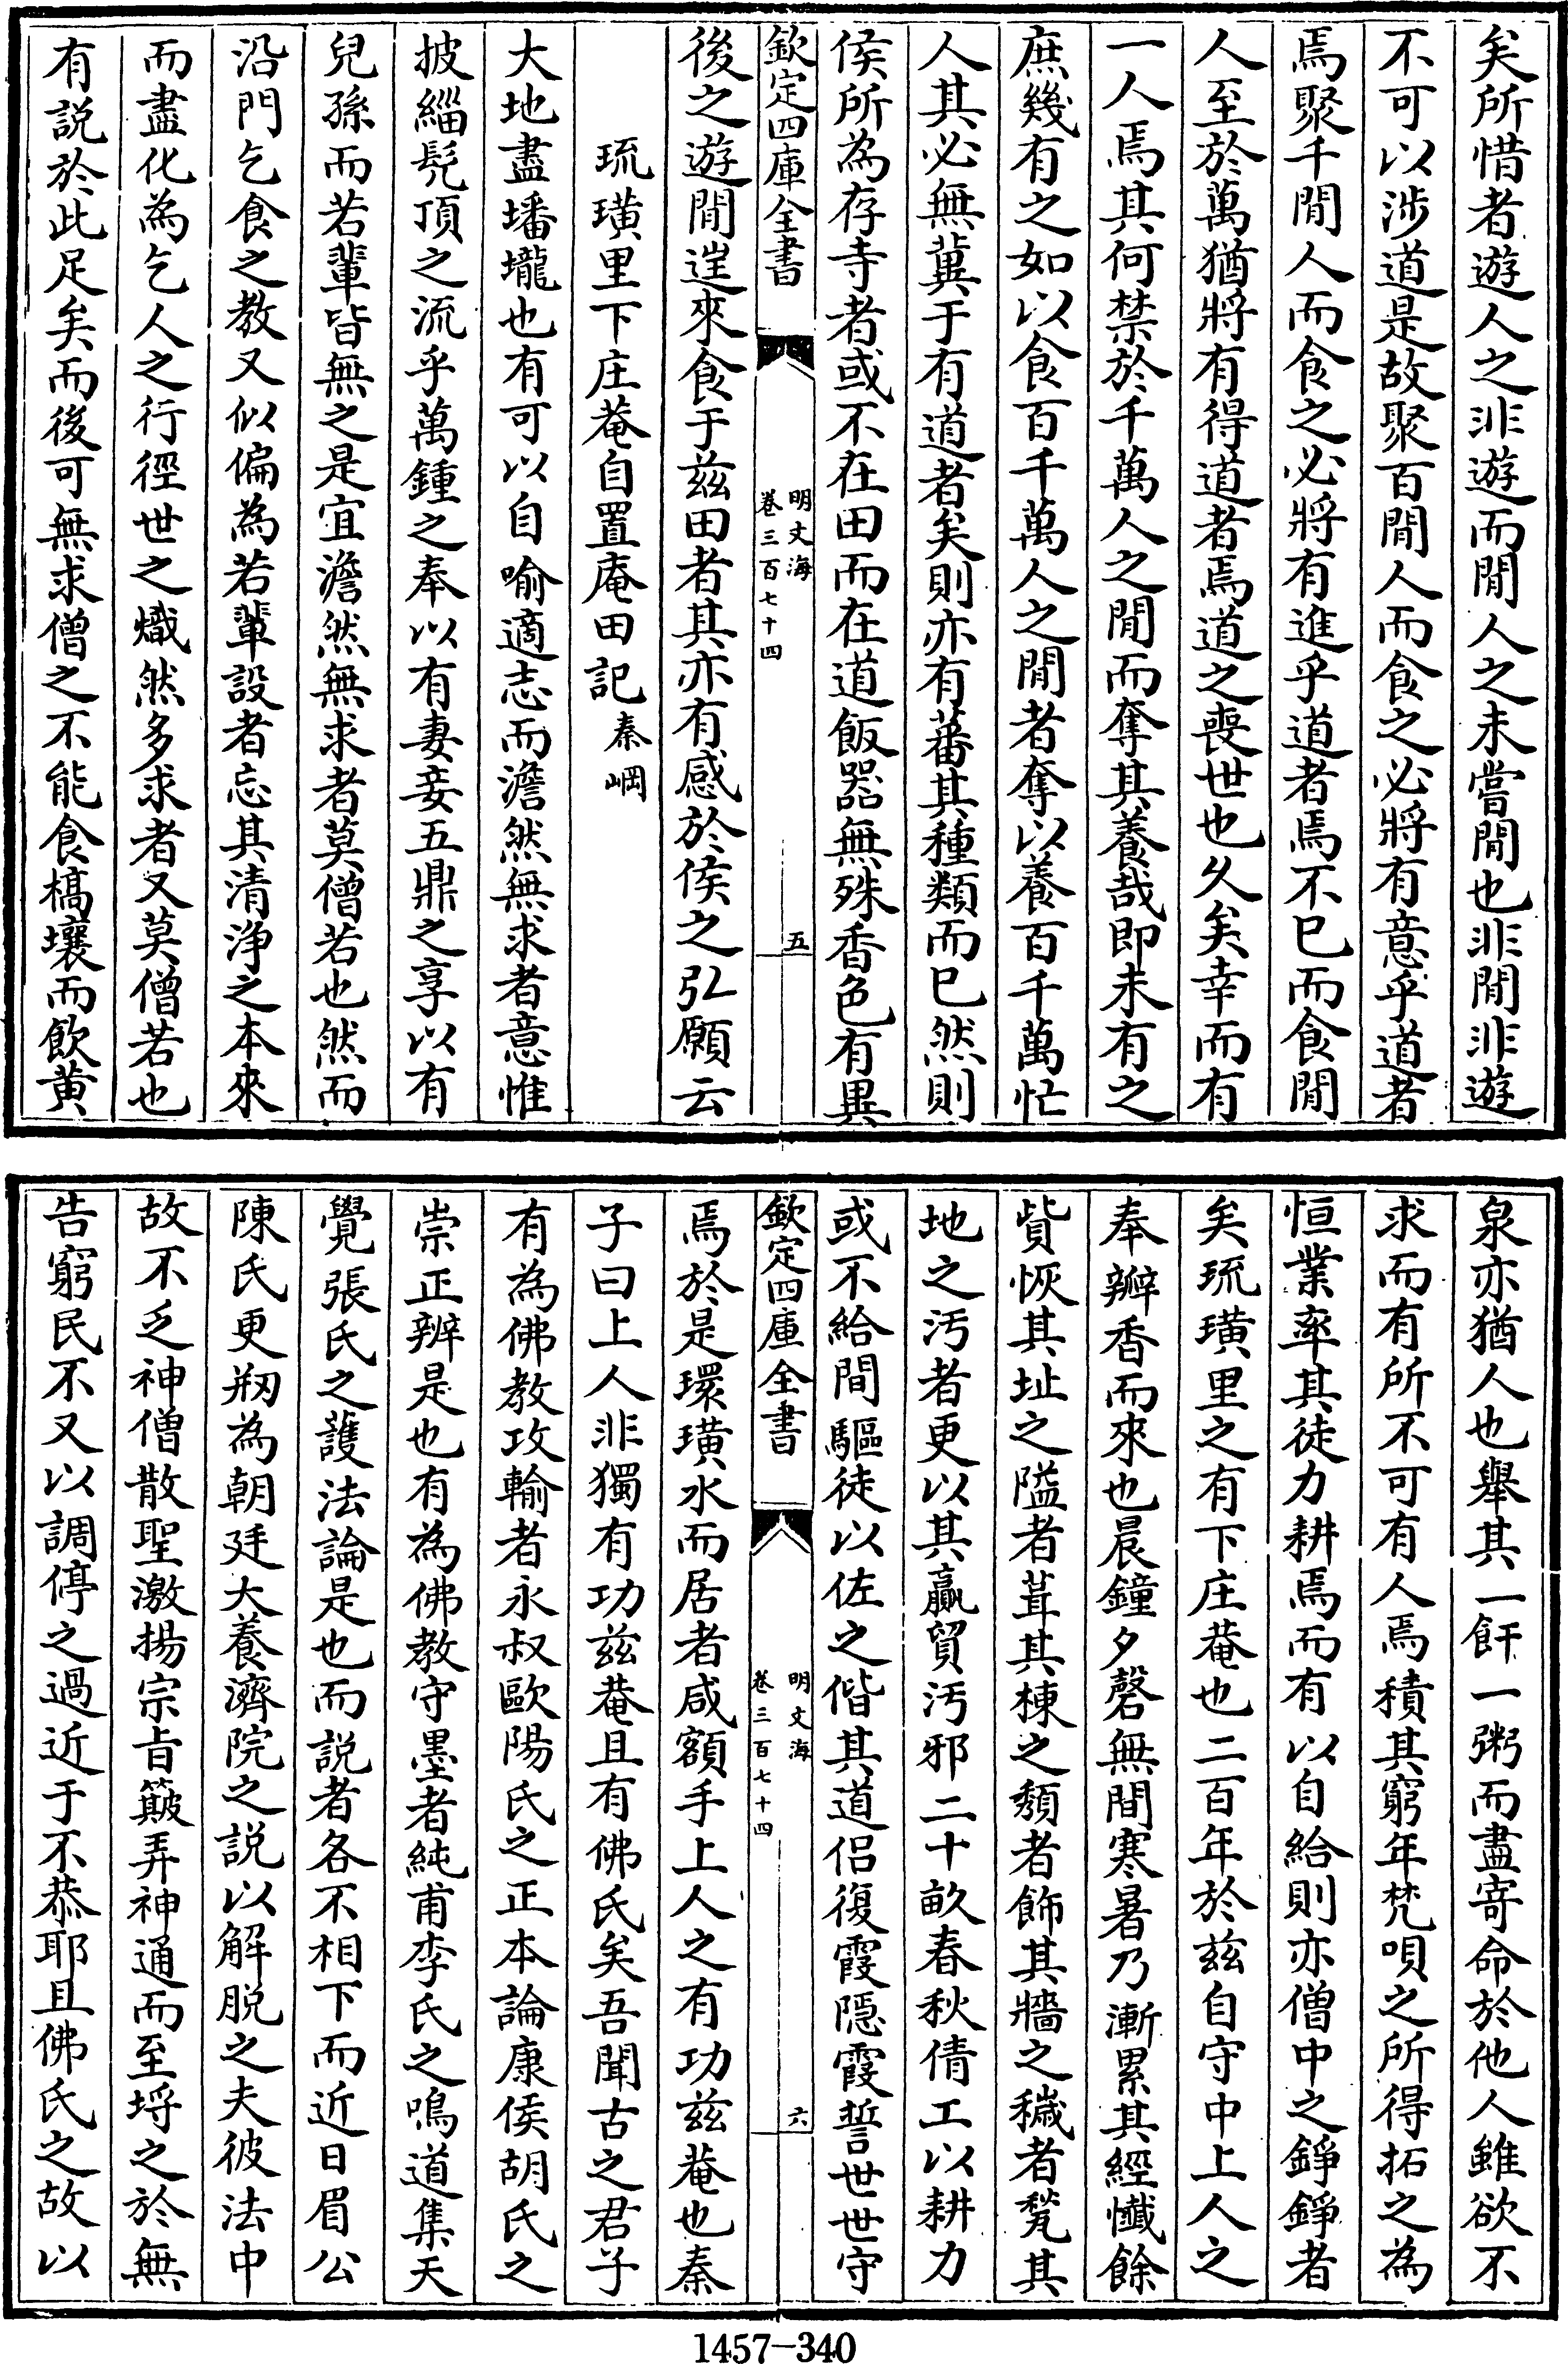 矣所惜者遊人之非遊而閒人之未嘗閒也非閒非遊
不可以涉道是故聚百閒人而食之必將有意乎道者
焉聚千閒人而食之必將有進乎道者焉不已而食閒
人至於萬猶將有得道者焉道之喪世也久矣幸而有
一人焉其何禁於千萬人之閒而奪其養哉即未有之
庶幾有之如以食百千萬人之閒者奪以養百千萬忙
人其必無冀于有道者矣則亦有蕃其種類而已然則
侯所為存寺者或不在田而在道飯器無殊香色有異
欽定四庫全書
明文海
卷三百七十四
五
後之遊閒遑來食于茲田者其亦有感於侯之弘願云
琉璜里下庄菴自置庵田記 秦𡹎
大地盡墦壠也有可以自喻適志而澹然無求者意惟
披緇髠頂之流乎萬鍾之奉以有妻妾五鼎之享以有
兒孫而若輩皆無之是宜澹然無求者莫僧若也然而
沿門乞食之教又似偏為若輩設者忘其清淨之本來
而盡化為乞人之行徑世之熾然多求者又莫僧若也
有說於此足矣而後可無求僧之不能食槁壤而飲黃
泉亦猶人也舉其一飦一粥而盡寄命於他人雖欲不
求而有所不可有人焉積其窮年梵唄之所得拓之為
恒業率其徒力耕焉而有以自給則亦僧中之錚錚者
矣琉璜里之有下庄菴也二百年於茲自守中上人之
奉瓣香而來也晨鐘夕磬無間寒暑乃漸累其經懺餘
貲恢其址之隘者葺其棟之頽者飾其牆之穢者甃其
地之汚者更以其贏貿汚邪二十畝春秋倩工以耕力
或不給間驅徒以佐之偕其道侶復霞隱霞誓世世守
欽定四庫全書
明文海
卷三百七十四
六
焉於是環璜水而居者咸額手上人之有功茲菴也秦
子曰上人非獨有功茲菴且有佛氏矣吾聞古之君子
有為佛教攻輸者永叔歐陽氏之正本論康侯胡氏之
崇正辨是也有為佛教守墨者純甫李氏之鳴道集天
覺張氏之護法論是也而說者各不相下而近日眉公
陳氏更剏為朝廷大養濟院之說以解脱之夫彼法中
故不乏神僧散聖激揚宗旨簸弄神通而至埒之於無
告窮民不又以調停之過近于不恭耶且佛氏之故以
1457-340